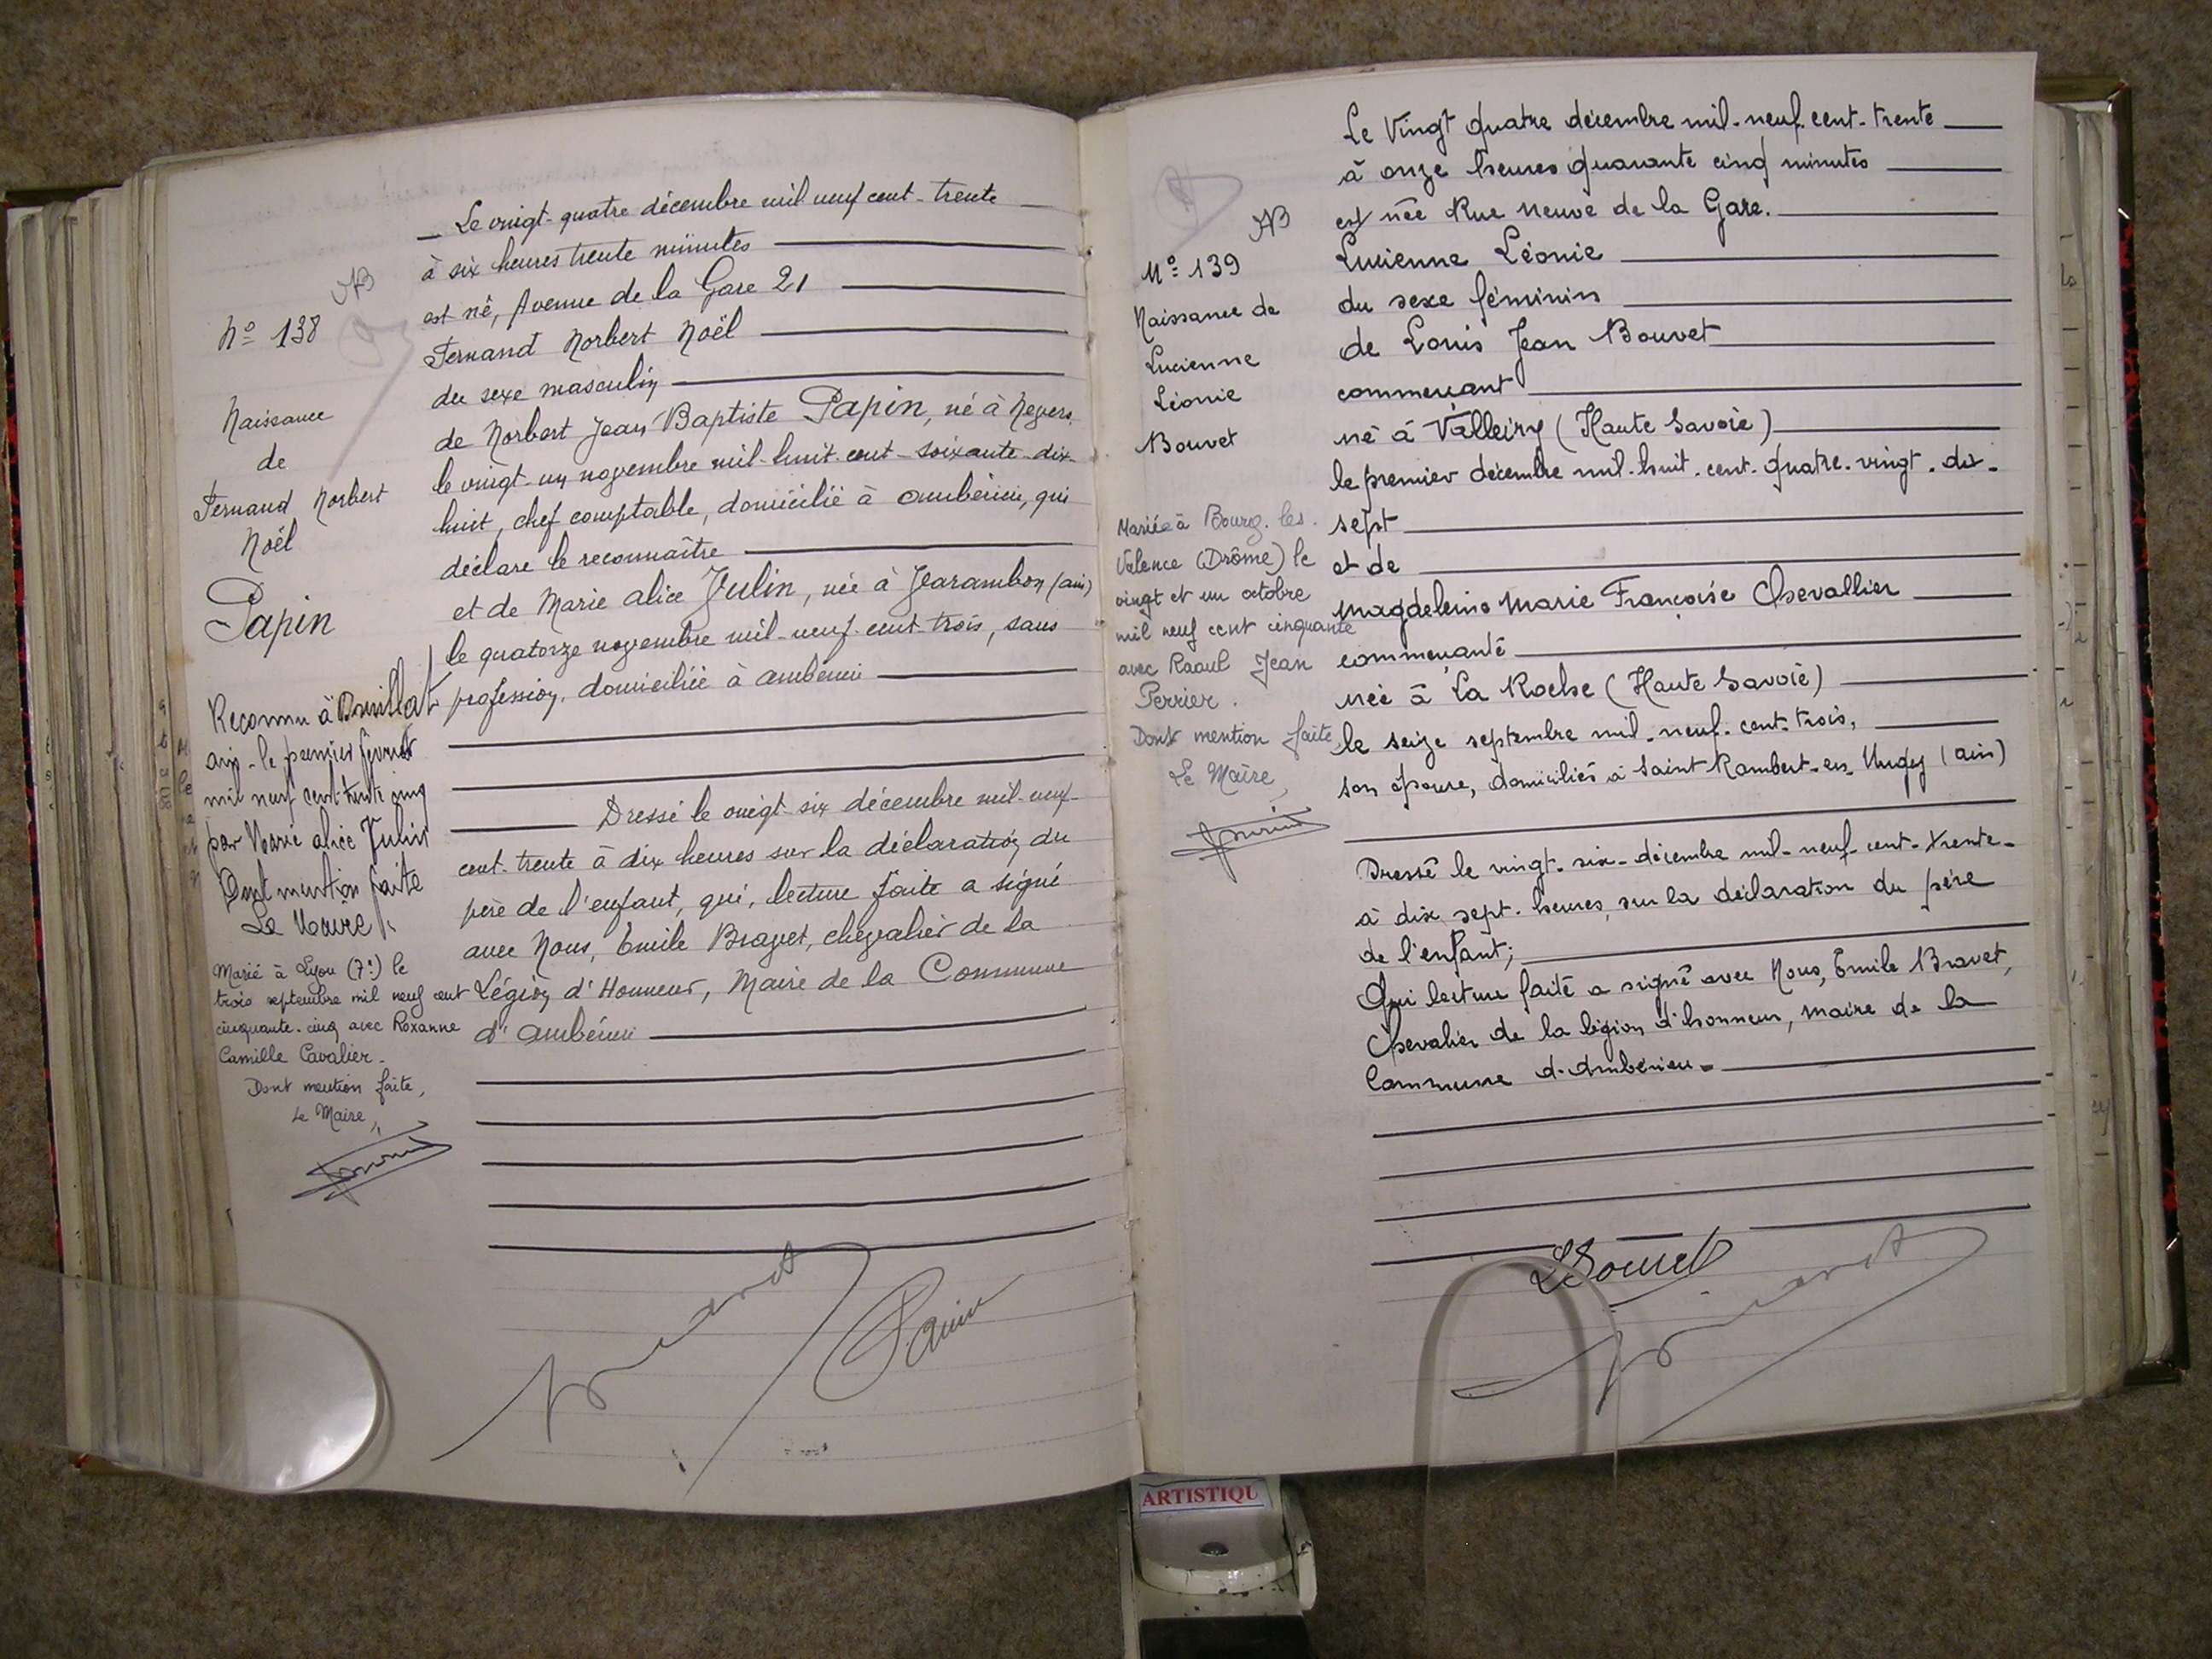 Nº 138
Naissance
de
Fernand Norbert
Noël
Papin
Reconnu à Druillat
ain - le premier février
mil neuf cent trente cinq
par Marie alice Julin
Dont mention faite
Le Maire
Marié à Lyon (7e) le
trois septembre mil neuf cent
cinquante-cinq avec Roxanne
Camille Cavalier.
Dont mention faite,
Le Maire,
Le vingt-quatre décembre mil neuf cent-trente
à six heures trente minutes
est né, Avenue de la Gare 21
Fernand Norbert Noël
du sexe masculin
de Norbert Jean Baptiste Papin, né à Nevers
le vingt-un novembre mil-huit-cent-soixante-dix-
huit, chef comptable, domicilié à Ambérieu, qui
déclare le reconnaître
et de Marie alice Julin, née à (ain)
le quatorze novembre mil-neuf-cent-trois, sans
profession, domiciliée à ambérieu
Dressé le vingt-six décembre mil-neuf-
cent-trente à dix heures sur la déclaration du
père de l'enfant, qui, lecture faite a signé
avec Nous, Emile Bravet, chevalier de la
Légion d'Honneur, Maire de la Commune
d'ambérieu
Papin
AB
Nº 139
Naissance de
Lucienne
Léonie
Bouvet
Mariée à Bourg-les-
Valence (Drôme) le
vingt et un octobre
mil neuf cent cinquante
avec Raoul Jean
Perrier.
Dont mention faite
Le Maire,
Le Vingt quatre décembre mil-neuf-cent-trente
à onze heures quarante cinq minutes
est née Rue neuve de la Gare.
Lucienne Léonie
du sexe féminin
de Louis Jean Bouvet
commerçant
né à Valleiry (Haute Savoie)
le premier décembre mil-huit-cent-quatre-vingt-dix-
sept
et de
Magdeleine Marie Françoise Chevallier
commerçante
née à La Roche (Haute Savoie)
le seize septembre mil-neuf-cent-trois,
son épouse, domiciliés à Saint Rambert-en- (ain)
Dressé le vingt-six-décembre mil-neuf-cent-trente-
à dix sept-heures, sur la déclaration du père
de l'enfant;
Qui lecture faite a signé avec Nous, Emile Bravet,
Chevalier de la légion d'honneur, maire de la
Commune d'Ambérieu.
LBouvet
ARTISTIQU